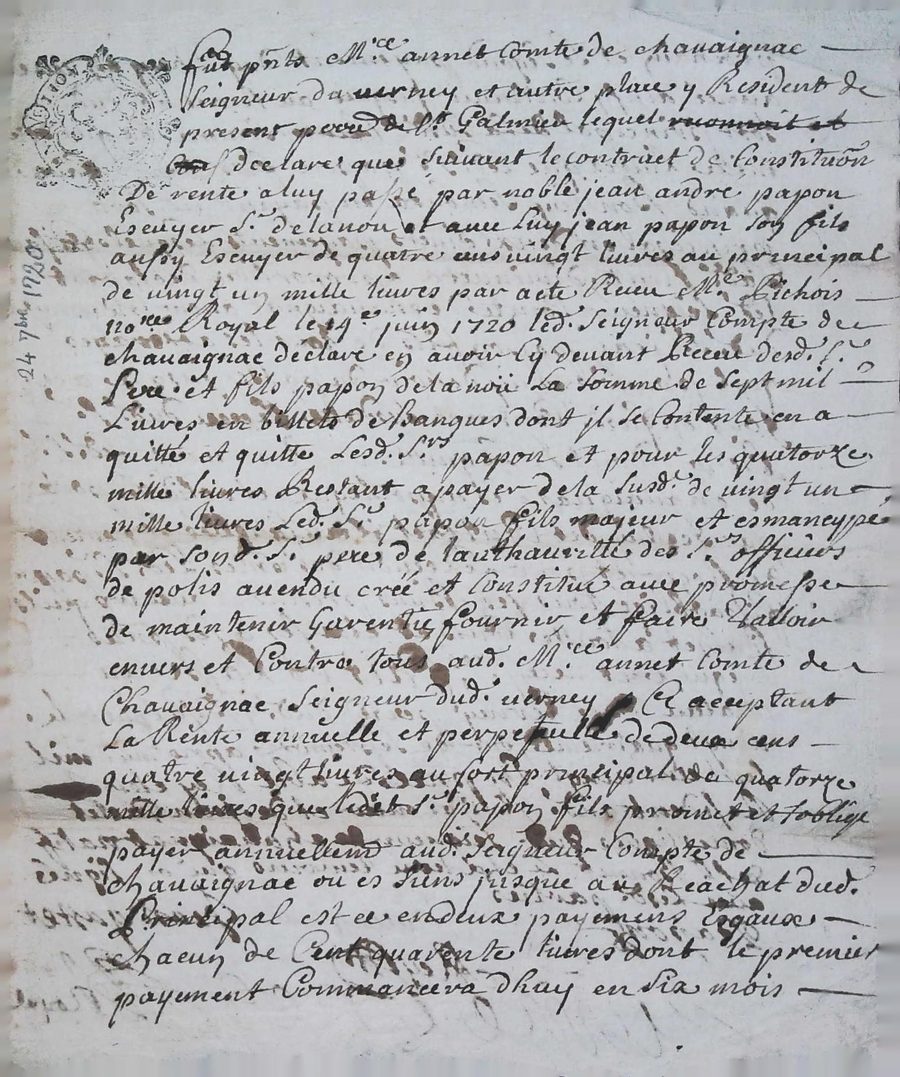 fut pnts Mre annet Comte de chavaignac
Seigneur du verney et autre place y Resident de
present pered de St Galmier lequel reconnoit et
Conf declare que suivant le contract de Constituōn
De rente a luy passé par noble jean andré papon
Escuyer Sr delanoü et avec Luy jean papon son fils
aussy Escuyer de quatre cens vingt livres au principal
de vingt un mille livres par acte Receu Me Pichois
nore Royal le 14e juin 1720 led. Seigneur Compte de
chavaignac declare en avoir cy devant Receu desd. Srs
Pere et fils papon de la noü La somme de sept mil
Livres en billets de banques dont jl se Contente en a
quitté et quitte Lesd. Srs papon et pour les quatorze
mille livres Restant a payer de la susde de vingt un
mille livres Led. Sr papon fils majeur et esmancypé
par sond. Sr pere de lauthauritté des Srs officiers
de polis a vendu créé et Constitué avec promesse
de maintenir Garentir fournir et faire Valloir
envers et Contre tous aud. Mre annet Comte de
Chavaignac Seigneur dud. verney Ce acceptant
La Rente annuelle et perpetuelle de deux cens
quatre vingt livres au sort principal de quatorze
mille livres que ledit Sr papon fils promet et soblige
payer annuellemt aud. Seigneur Compte de
chavaignac ou es siens jusque au Reachat dud.
Principal est ce en deux payemens Egaux
chacun de Cent quarente livres dont le premier
payement Commancera dhuy en six mois
24 7bre 1720